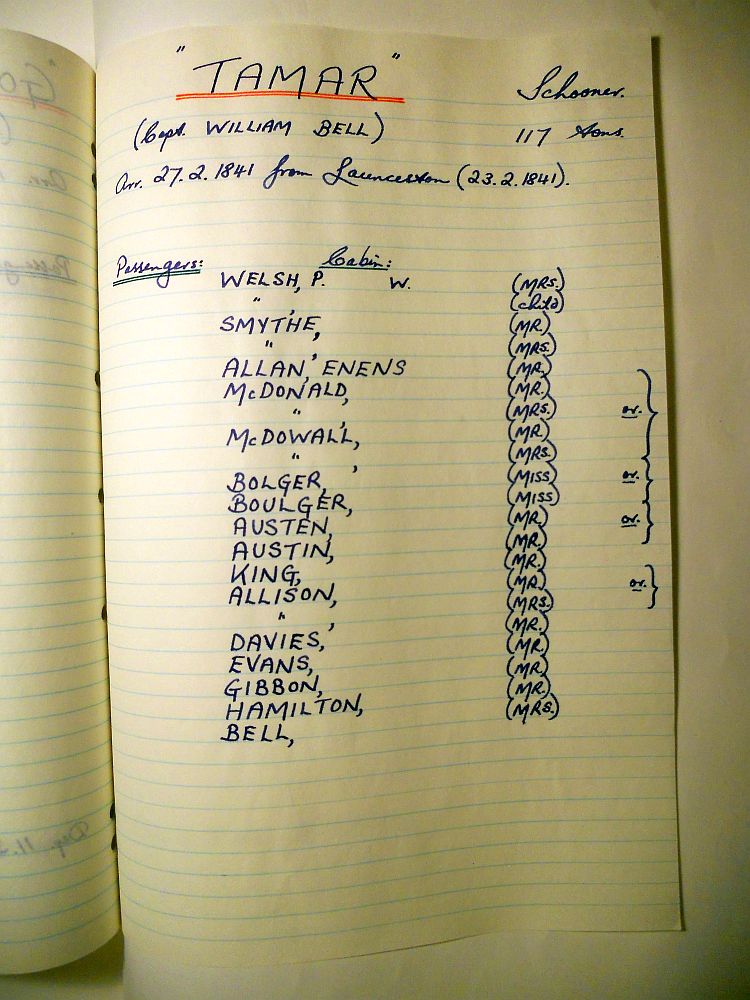 "TAMAR"
Schooner.
(Capt. WILLIAM BELL) 117 tons.
Arr. 27.2.1841 from Launceston (23.2.1841).
Passengers: Cabin:
WELSH, P. W. (MRS.)
" , (child)
SMYTHE, (MR.)
" , (MRS.)
ALLAN, ENENS (MR.)
McDONALD, (MR.)
" , (MRS.) or.
McDOWALL, (MR.)
" , (MRS.)
BOLGER, (MISS) or.
BOULGER, (MISS)
AUSTEN, (MR.) or.
AUSTIN, (MR.)
KING, (MR.)
ALLISON, (MR.) or.
" , (MRS.)
DAVIES, (MR.)
EVANS, (MR.)
GIBBON, (MR.)
HAMILTON, (MR.)
BELL, (MRS.)